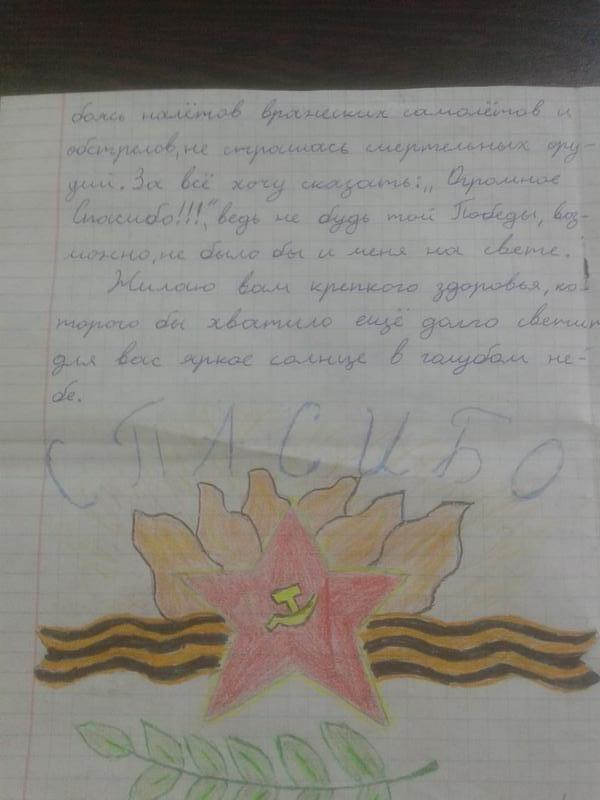 боясь налётов вражеских самолётов и
обстрелов, не страшась смертельных ору-
дий. За всё хочу сказать: „Огромное
Спасибо!!!", ведь не будь той Победы, воз-
можно, не было бы и меня на свете.
Жилаю вам крепкого здоровья, ко-
торого бы хватило ещё долго светит
для вас яркое солнце в голубом не-
бе.
СПАСИБО